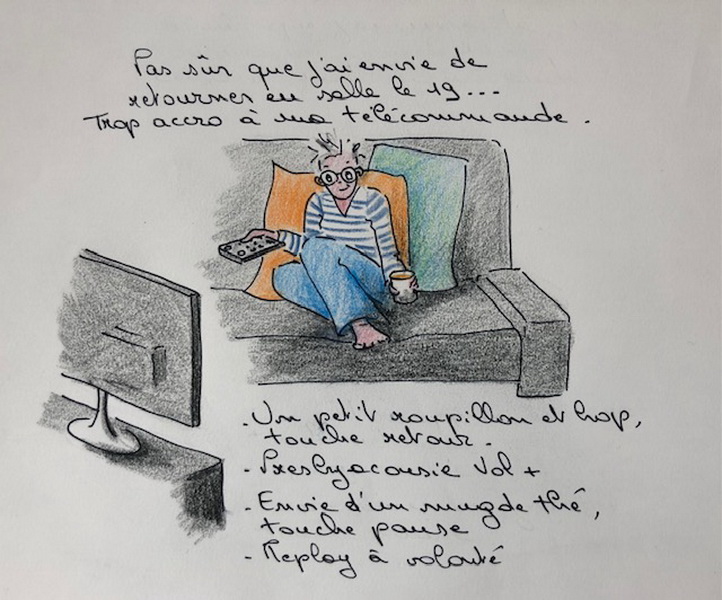 Pas sûr que j'ai envie de
retourner en salle le 19...
Trop accro à ma télécommande.
. Un petit roupillon et hop,
touche retour.
- Presbyacousie Vol +
- Envie d'un mug de thé,
touche pause
- Replay à volonté